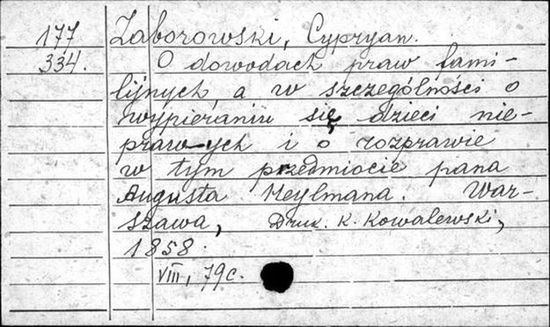 177
334.
Zaborowski, Cypryan.
O dowodach praw fami-
lijnych, a w szczególności o
wypieraniu się dzieci nie-
prawych i o rozprawie
w tym przedmiocie pana
Augusta Heylmana. War-
szawa, Druk. K. Kowalewski,
1858.
VIII, 79c.